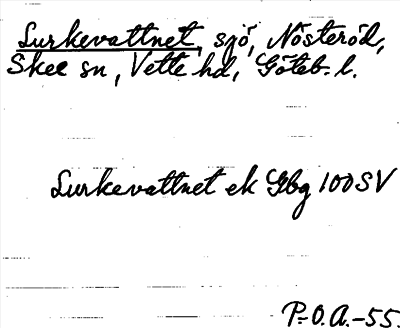 Lurkevattnet, sjö, Nösteröd,
Skee sn, Vette hd, Göteb. l.
Lurkevattnet ek Gbg 100SV
P.-O.A.-55.